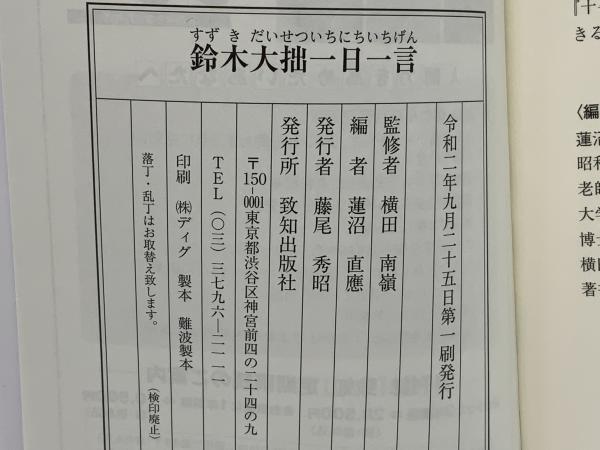 すずきだいせついちにちいちげん
鈴木大拙一日一言
令和二年九月二十五日第一刷発行
監修者 横田 南嶺
編者 蓮沼 直應
発行者 藤尾 秀昭
発行所 致知出版社
〒150-0001東京都渋谷区神宮前四の二十四の九
TEL(〇三)三七九六―二一一一
印刷 ㈱ディグ 製本 難波製本
落丁・乱丁はお取替え致します。
(検印廃止)
『十
きる
〈編
蓮沼
昭和
老師
大学
博士
横田
著書